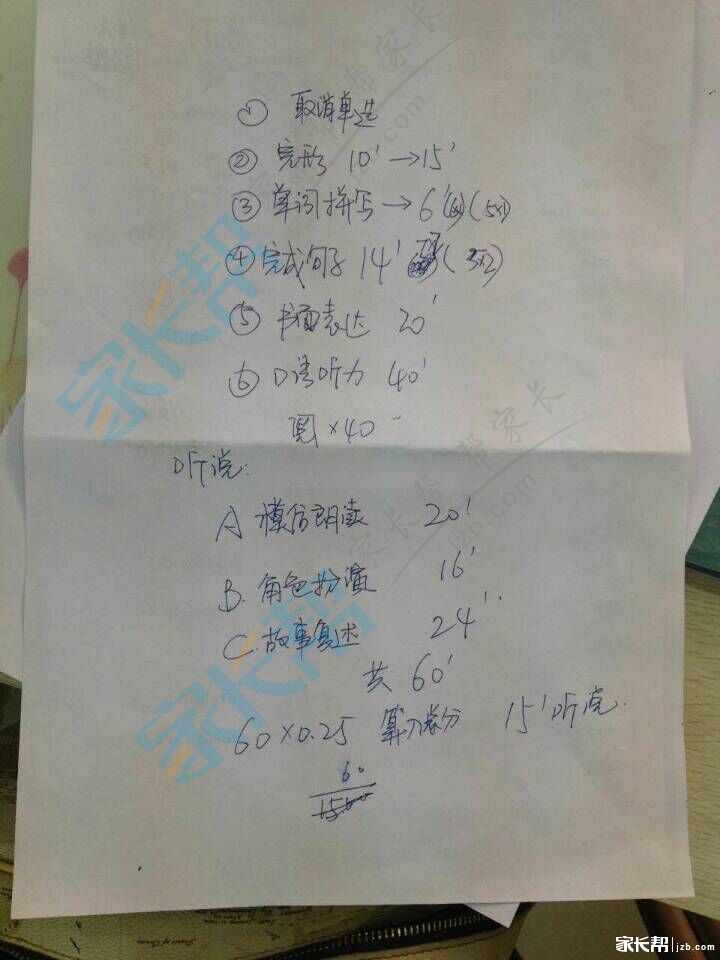 ① 取消单选
② 完形 10' → 15'
③ 单词拼写 → 6' (5x1)
④ 完成句子 14' (5x2)
⑤ 书面表达 20'
⑥ 口语听力 40'
x 40
听说:
A 模仿朗读 20'
B. 角色扮演 16'
C. 故事复述 24'
共 60'
60 x 0.25 算入总分 15' 听说.
60
家长帮
家长帮
家长帮
jzb.com
家长帮 jzb.com